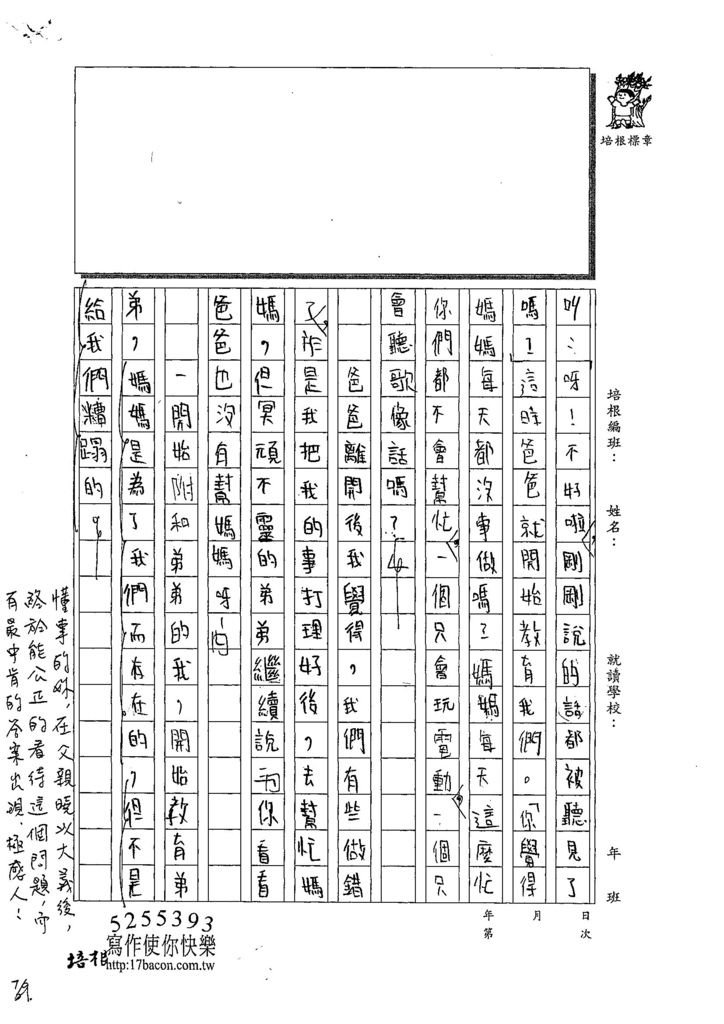 培根標章
培根編班：　姓名：　就讀學校：　年　班
年　月　日
第　次
叫：呀！不好啦剛剛說的話都被聽見了
嗎！」這時爸爸就開始教育我們。「你覺得
媽媽每天都沒事做嗎？媽媽每天這麼忙
你們都不會幫忙，一個只會玩電動，一個只
會聽歌像話嗎？」
爸爸離開後我覺得，我們有些做錯
了，於是我把我的事打理好後，去幫忙媽
媽，但冥頑不靈的弟弟繼續說：「你看看
爸爸，也沒有幫媽媽呀」
一開始附和弟弟的我，開始教育弟
弟，媽媽是為了我們而存在的，但不是
給我們糟蹋的。
懂事的妳，在父親曉以大義後，
終於能公正的看待這個問題，而
有最中肯的答案出現，極感人！
5255393
寫作使你快樂
培根 http://17bacon.com.tw